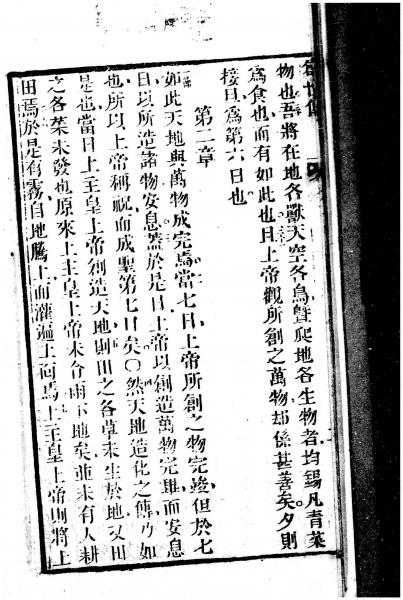 創世傳
物也吾將在地各獸天空各鳥曁爬地各生物者均錫凡青菜
爲食也而有如此也且上帝觀所創之萬物却係甚善矣夕則
接旦爲第六日也
第二章
如此天地與萬物成完焉當七日上帝所創之物完竣但於七
日以所造諸物安息蓋於是日上帝以創造萬物完畢而安息
也所以上帝稱祝而成聖第七日矣〇然天地造化之傳乃如
是也當日上主皇上帝創造天地則田之各草未生於地又田
之各菜未發也原來上主皇上帝未令雨下地矣並未有人耕
田焉於是有霧自地騰上而灌遍上面焉上主皇上帝則將土